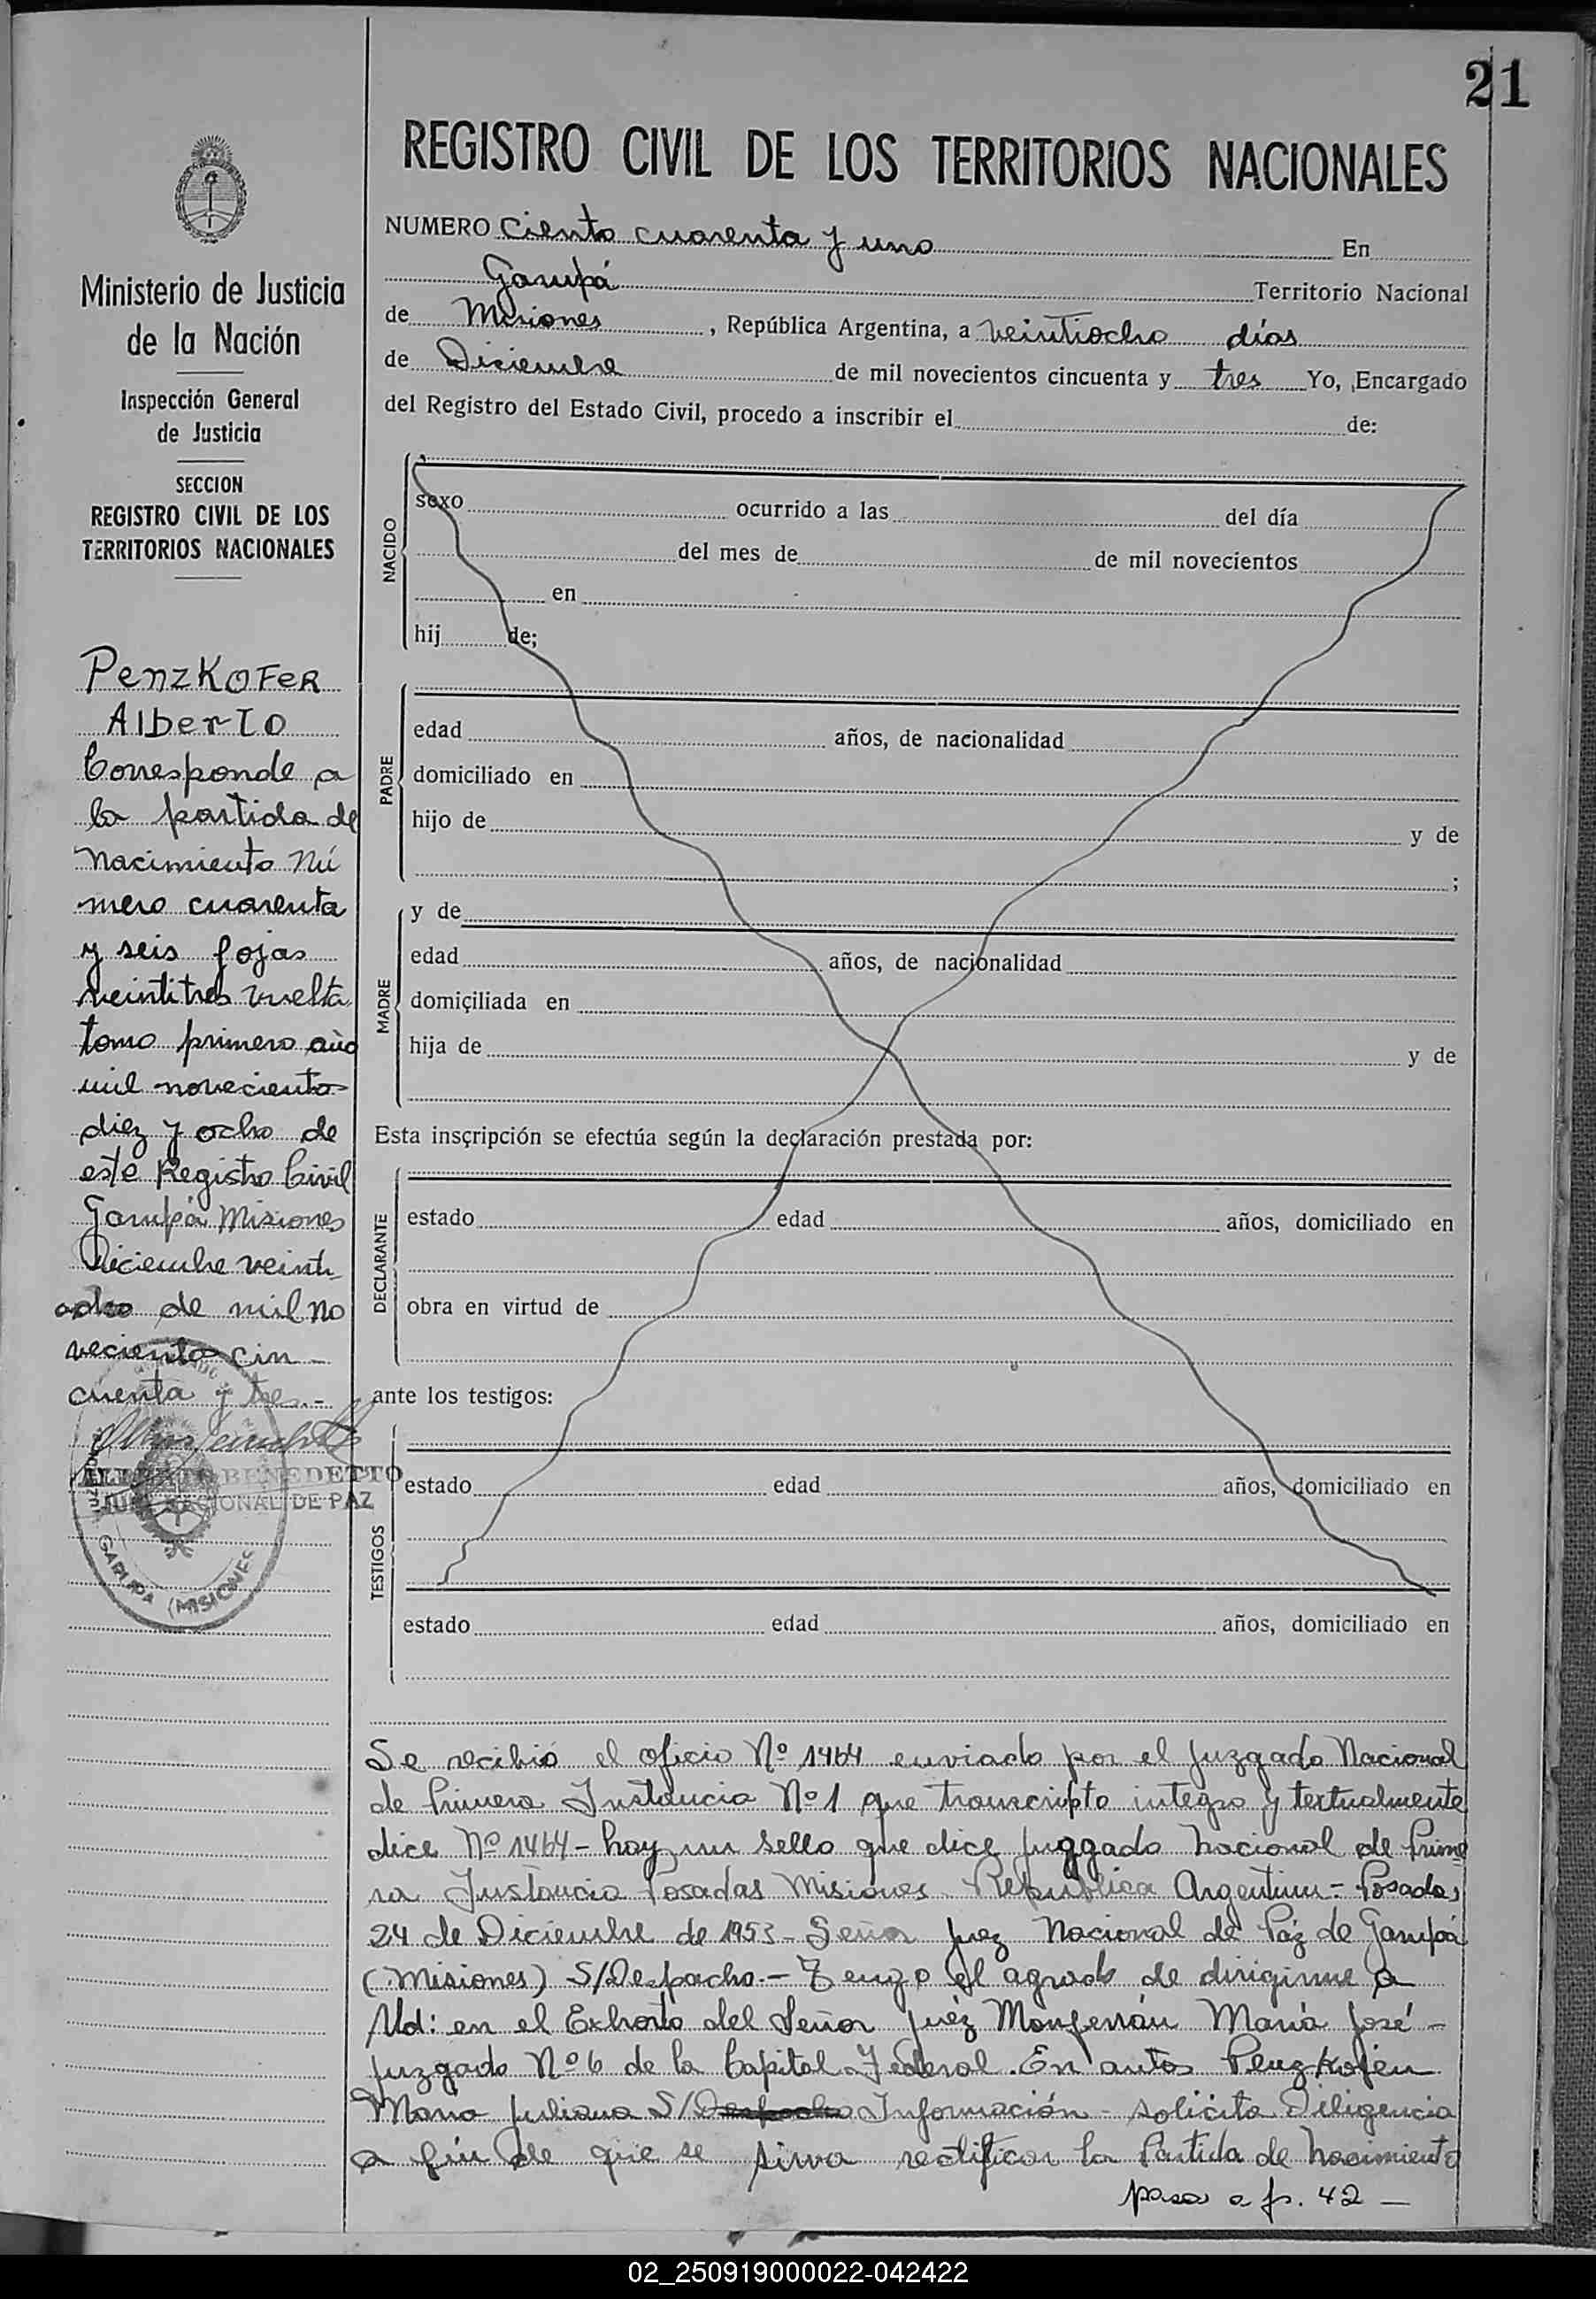 21
REGISTRO CIVIL DE LOS TERRITORIOS NACIONALES
NUMERO Ciento cuarenta y uno En
Garupá Territorio Nacional
de Misiones, República Argentina, a veintiocho días
de Diciembre de mil novecientos cincuenta y tres Yo, Encargado
del Registro del Estado Civil, procedo a inscribir el de:
NACIDO
sexo ocurrido a las del día
del mes de de mil novecientos
en
hij de;
PADRE
edad años, de nacionalidad
domiciliado en
hijo de y de
;
MADRE
y de
edad años, de nacionalidad
domiciliada en
hija de y de
Esta inscripción se efectúa según la declaración prestada por:
DECLARANTE
estado edad años, domiciliado en
obra en virtud de
ante los testigos:
TESTIGOS
estado edad años, domiciliado en
estado edad años, domiciliado en
Se recibió el oficio Nº 1464 enviado por el Juzgado Nacional
de Primera Instancia Nº 1 que transcripto integro y textualmente
dice Nº 1464 - hay un sello que dice Juzgado Nacional de Prime
ra Instancia Posadas Misiones República Argentina - Posadas
24 de Diciembre de 1953 - Señor Juez Nacional de Paz de Garupá
(Misiones) S/Despacho. - Tengo el agrado de dirigirme a
Ud: en el Exhorto del Señor Juéz Monferrán María José -
Juzgado Nº 6 de la Capital Federal. En autos Penzkofer
María Juliana S/ Información - solicita Diligencia
a fin de que se sirva rectificar la Partida de Nacimiento
pasa a fs. 42 -
Ministerio de Justicia
de la Nación
Inspección General
de Justicia
SECCION
REGISTRO CIVIL DE LOS
TERRITORIOS NACIONALES
PenzKOFeR
AlberTO
Corresponde a
la partida de
nacimiento Nú
mero cuarenta
y seis fojas
veintitres vuelta
tomo primero año
mil novecientos
diez y ocho de
este Registro Civil
Garupá Misiones
Diciembre veinti
ocho de mil no
vecientos cin -
cuenta y tres. -
ALBERTO BENEDETTO
JUEZ NACIONAL DE PAZ
GARUPA (MISIONES
02_250919000022-042422